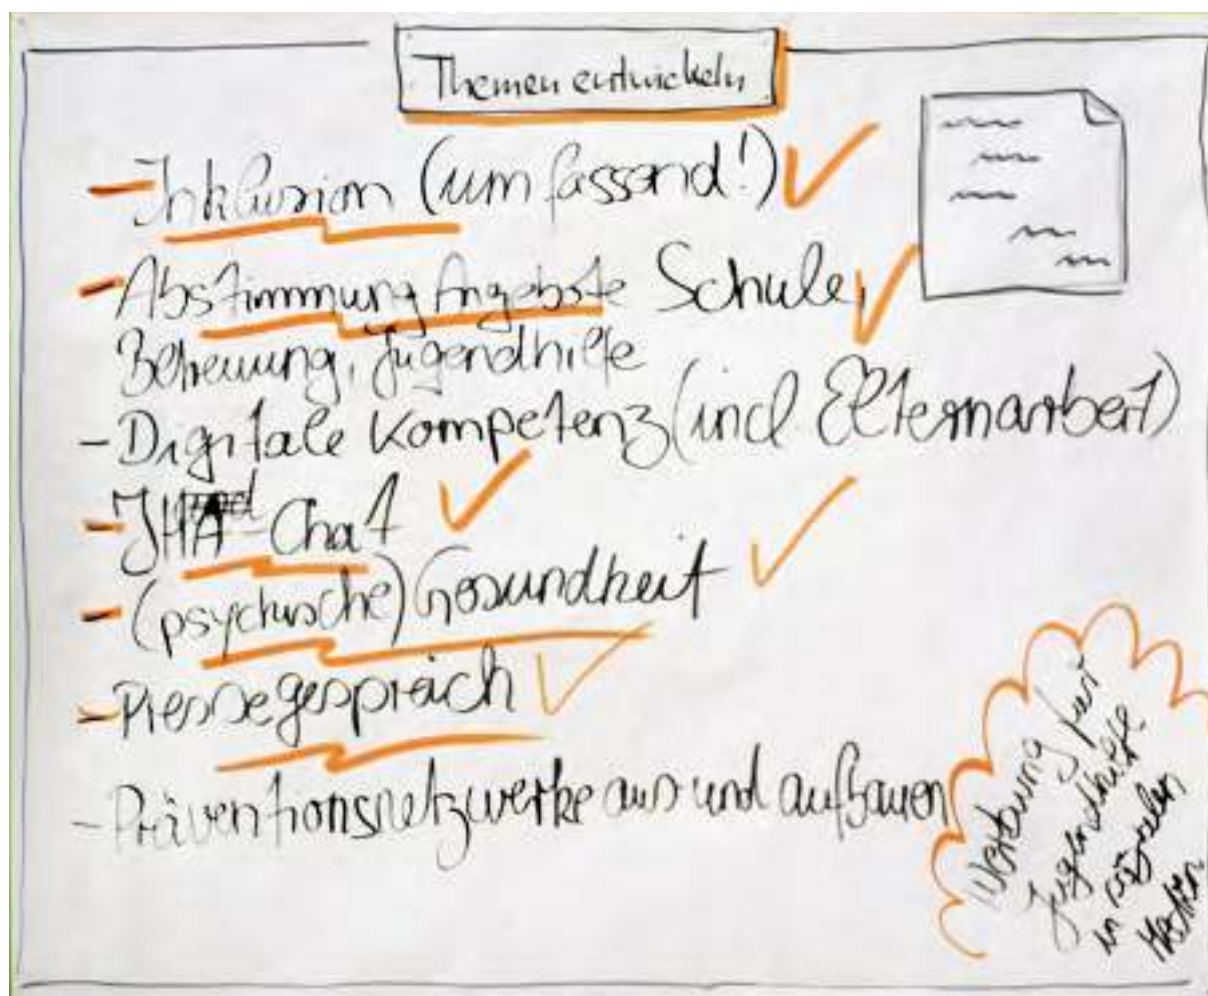 Themen entwickeln
- Inklusion (umfassend!)
- Abstimmung Angebote Schule,
Betreuung, Jugendhilfe
- Digitale Kompetenz (incl Elternarbeit)
- JHA Chat
- (psychische) Gesundheit
- Pressegespräch
- Präventionsnetzwerke aus und aufbauen
Werbung für
Jugendhilfe
in